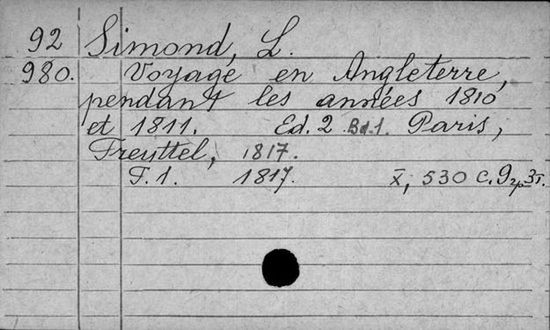 92 Simond, L.
980. Voyage en Angleterre,
pendant les années 1810
et 1811. Ed. 2 Bd. 1. Paris,
Treyttel, 1817.
T. 1. 1817. X, 530 c. 9